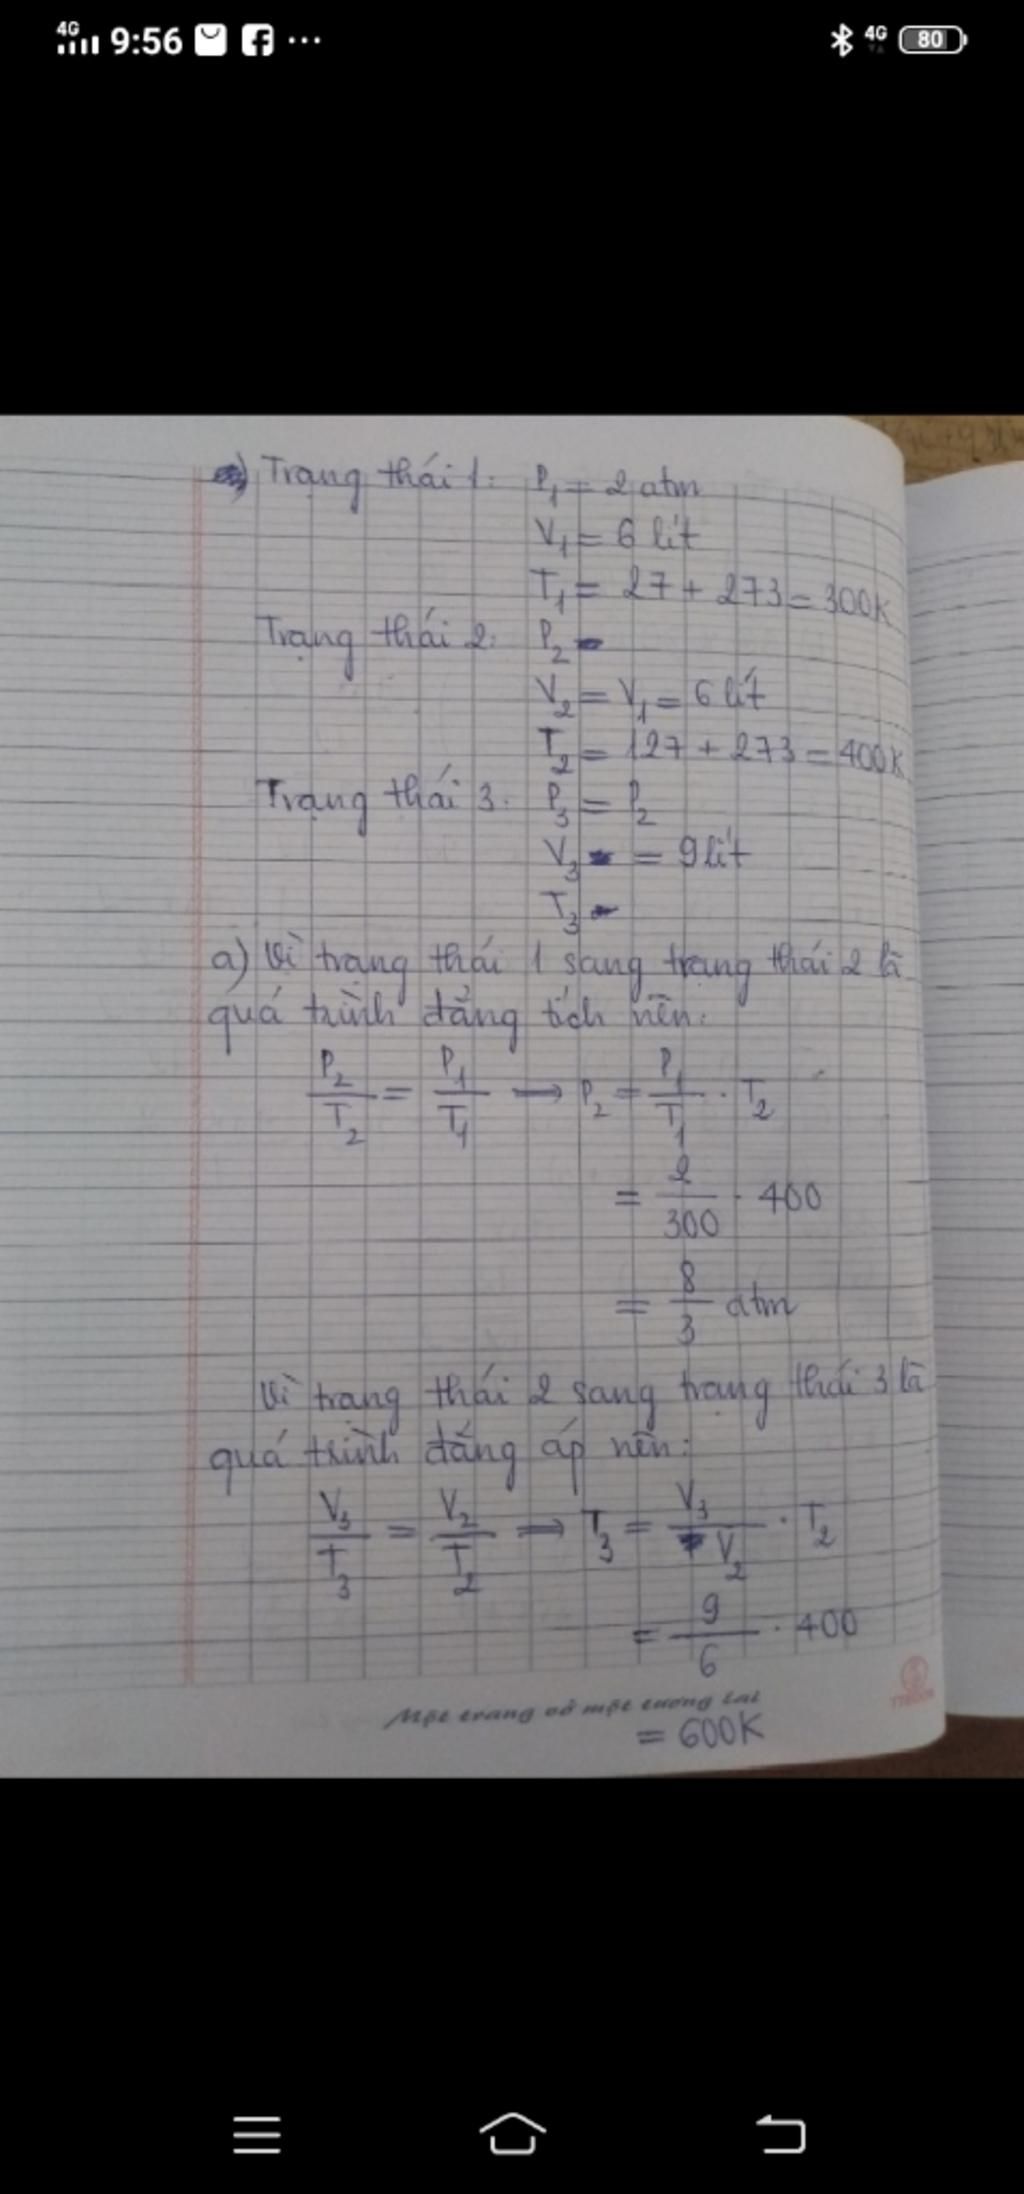 4G 9:56 ... 4G 80
Trạng thái 1: P₁ = 2 atm
V₁ = 6 lít
T₁ = 27 + 273 = 300K
Trạng thái 2: P₂
V₂ = V₁ = 6 lít
T₂ = 127 + 273 = 400K
Trạng thái 3: P₃ = P₂
V₃ = 9 lít
T₃
a) Vì trạng thái 1 sang trạng thái 2 là
quá trình đẳng tích nên:
P₂/T₂ = P₁/T₁ → P₂ = P₁/T₁ . T₂
= 2/300 . 400
= 8/3 atm
Vì trạng thái 2 sang trạng thái 3 là
quá trình đẳng áp nên:
V₃/T₃ = V₂/T₂ → T₃ = V₃/V₂ . T₂
= 9/6 . 400
Một trang vở một tương lai
= 600K